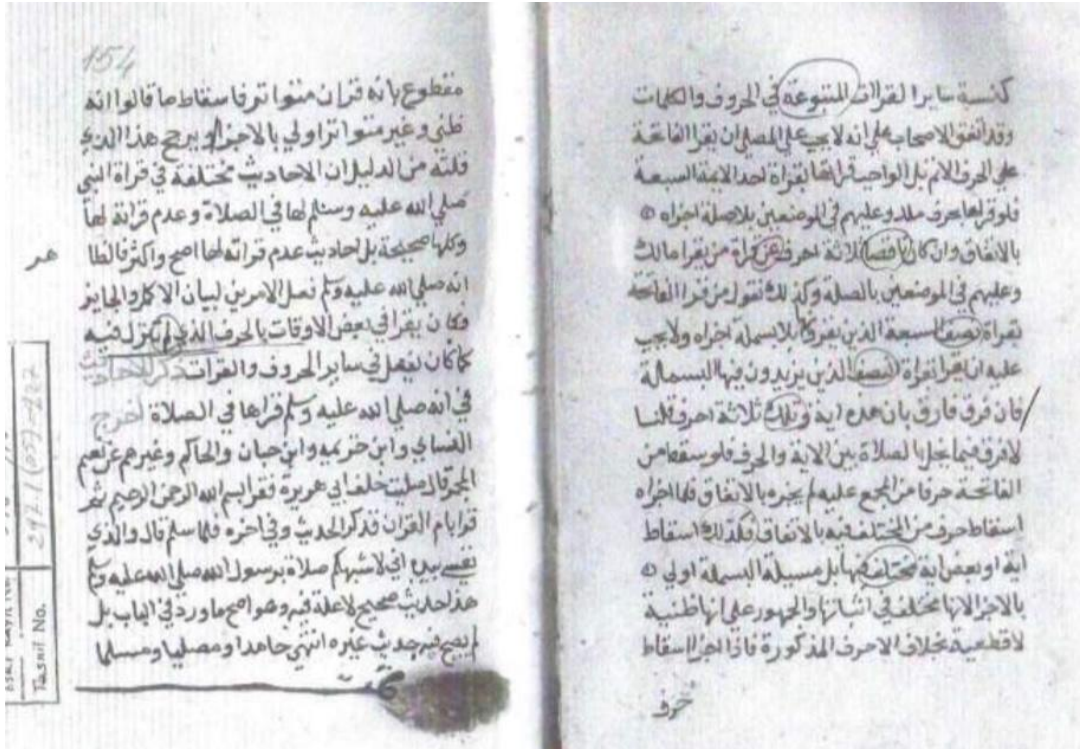 كنسبة ساير القراات المتنوعة في الحروف والكلمات
وقد اتفق الاصحاب علي انه لا يجب علي المصلي ان يقرا الفاتحة
علي الحرف الاتم بل الواجب قراتها بقراة احد الايمة السبعة
فلو قراها بحرف ملك وعليهم في الموضعين بلا صلة اجزاه
بالاتفاق وان كان ناقصا ثلاثة احرف عن قراة من يقرا مالك
وعليهم في الموضعين بالصلة وكذلك نقول من قرا الفاتحة
بقراة نصف السبعة الذين يقرؤ بلا بسملة اجزاه ولا يجب
عليه ان يقرا بقراة النصف الذين يزيدون فيها البسمالة
فان فرق فارق بان هذه اية وتلك ثلاثة احرف قلنا
لا فرق فيما يخل بالصلاة بين الاية والحرف فلو سقط من
الفاتحة حرفا من المجمع عليه لم يجزه بالاتفاق فلما اجزاه
اسقاط حرف من المختلف فيه بالاتفاق فكذلك اسقاط
اية او بعض اية مختلف فيها بل مسيلة البسملة اولي
بالاجزا لانها مختلف في اثباتها والجمهور علي انها ظنية
لا قطعية بخلاف الاحرف المذكورة فاذا اجزا اسقاط
حرف
154
مقطوع بانه قران متواتر فاسقاط ما قالوا انه
ظني وغير متواتر اولي بالاجزا ويرجح هذا الذي
قلته من الدليل ان الاحاديث مختلفة في قراة النبي
صلي الله عليه وسلم لها في الصلاة وعدم قراته لها
وكلها صحيحة بل احاديث عدم قراته لها اصح واكثر فالظا
هر
انه صلي الله عليه وسلم فعل الامرين لبيان الاكمل والجايز
فكان يقرا في بعض الاوقات بالحرف الذي لم تنزل فيه
كما كان يفعل في ساير الحروف والقرات ذكر الاحاديث
في انه صلي الله عليه وسلم قراها في الصلاة اخرج
النساي وابن خزيمه وابن حبان والحاكم وغيرهم عن نعيم
المجمر قال صليت خلف ابي هريرة فقرا بسم الله الرحمن الرحيم ثم
قرا بام القران فذكر الحديث وفي اخره فلما سلم قال والذي
نفسي بيده اني لاشبهكم صلاة برسول الله صلي الله عليه وسلم
هذا حديث صحيح لا علة فيه وهو اصح ما ورد في الباب بل
لم يصح فيه حديث غيره انتهي حامدا ومصليا ومسلما
Tasnif No. 297.1